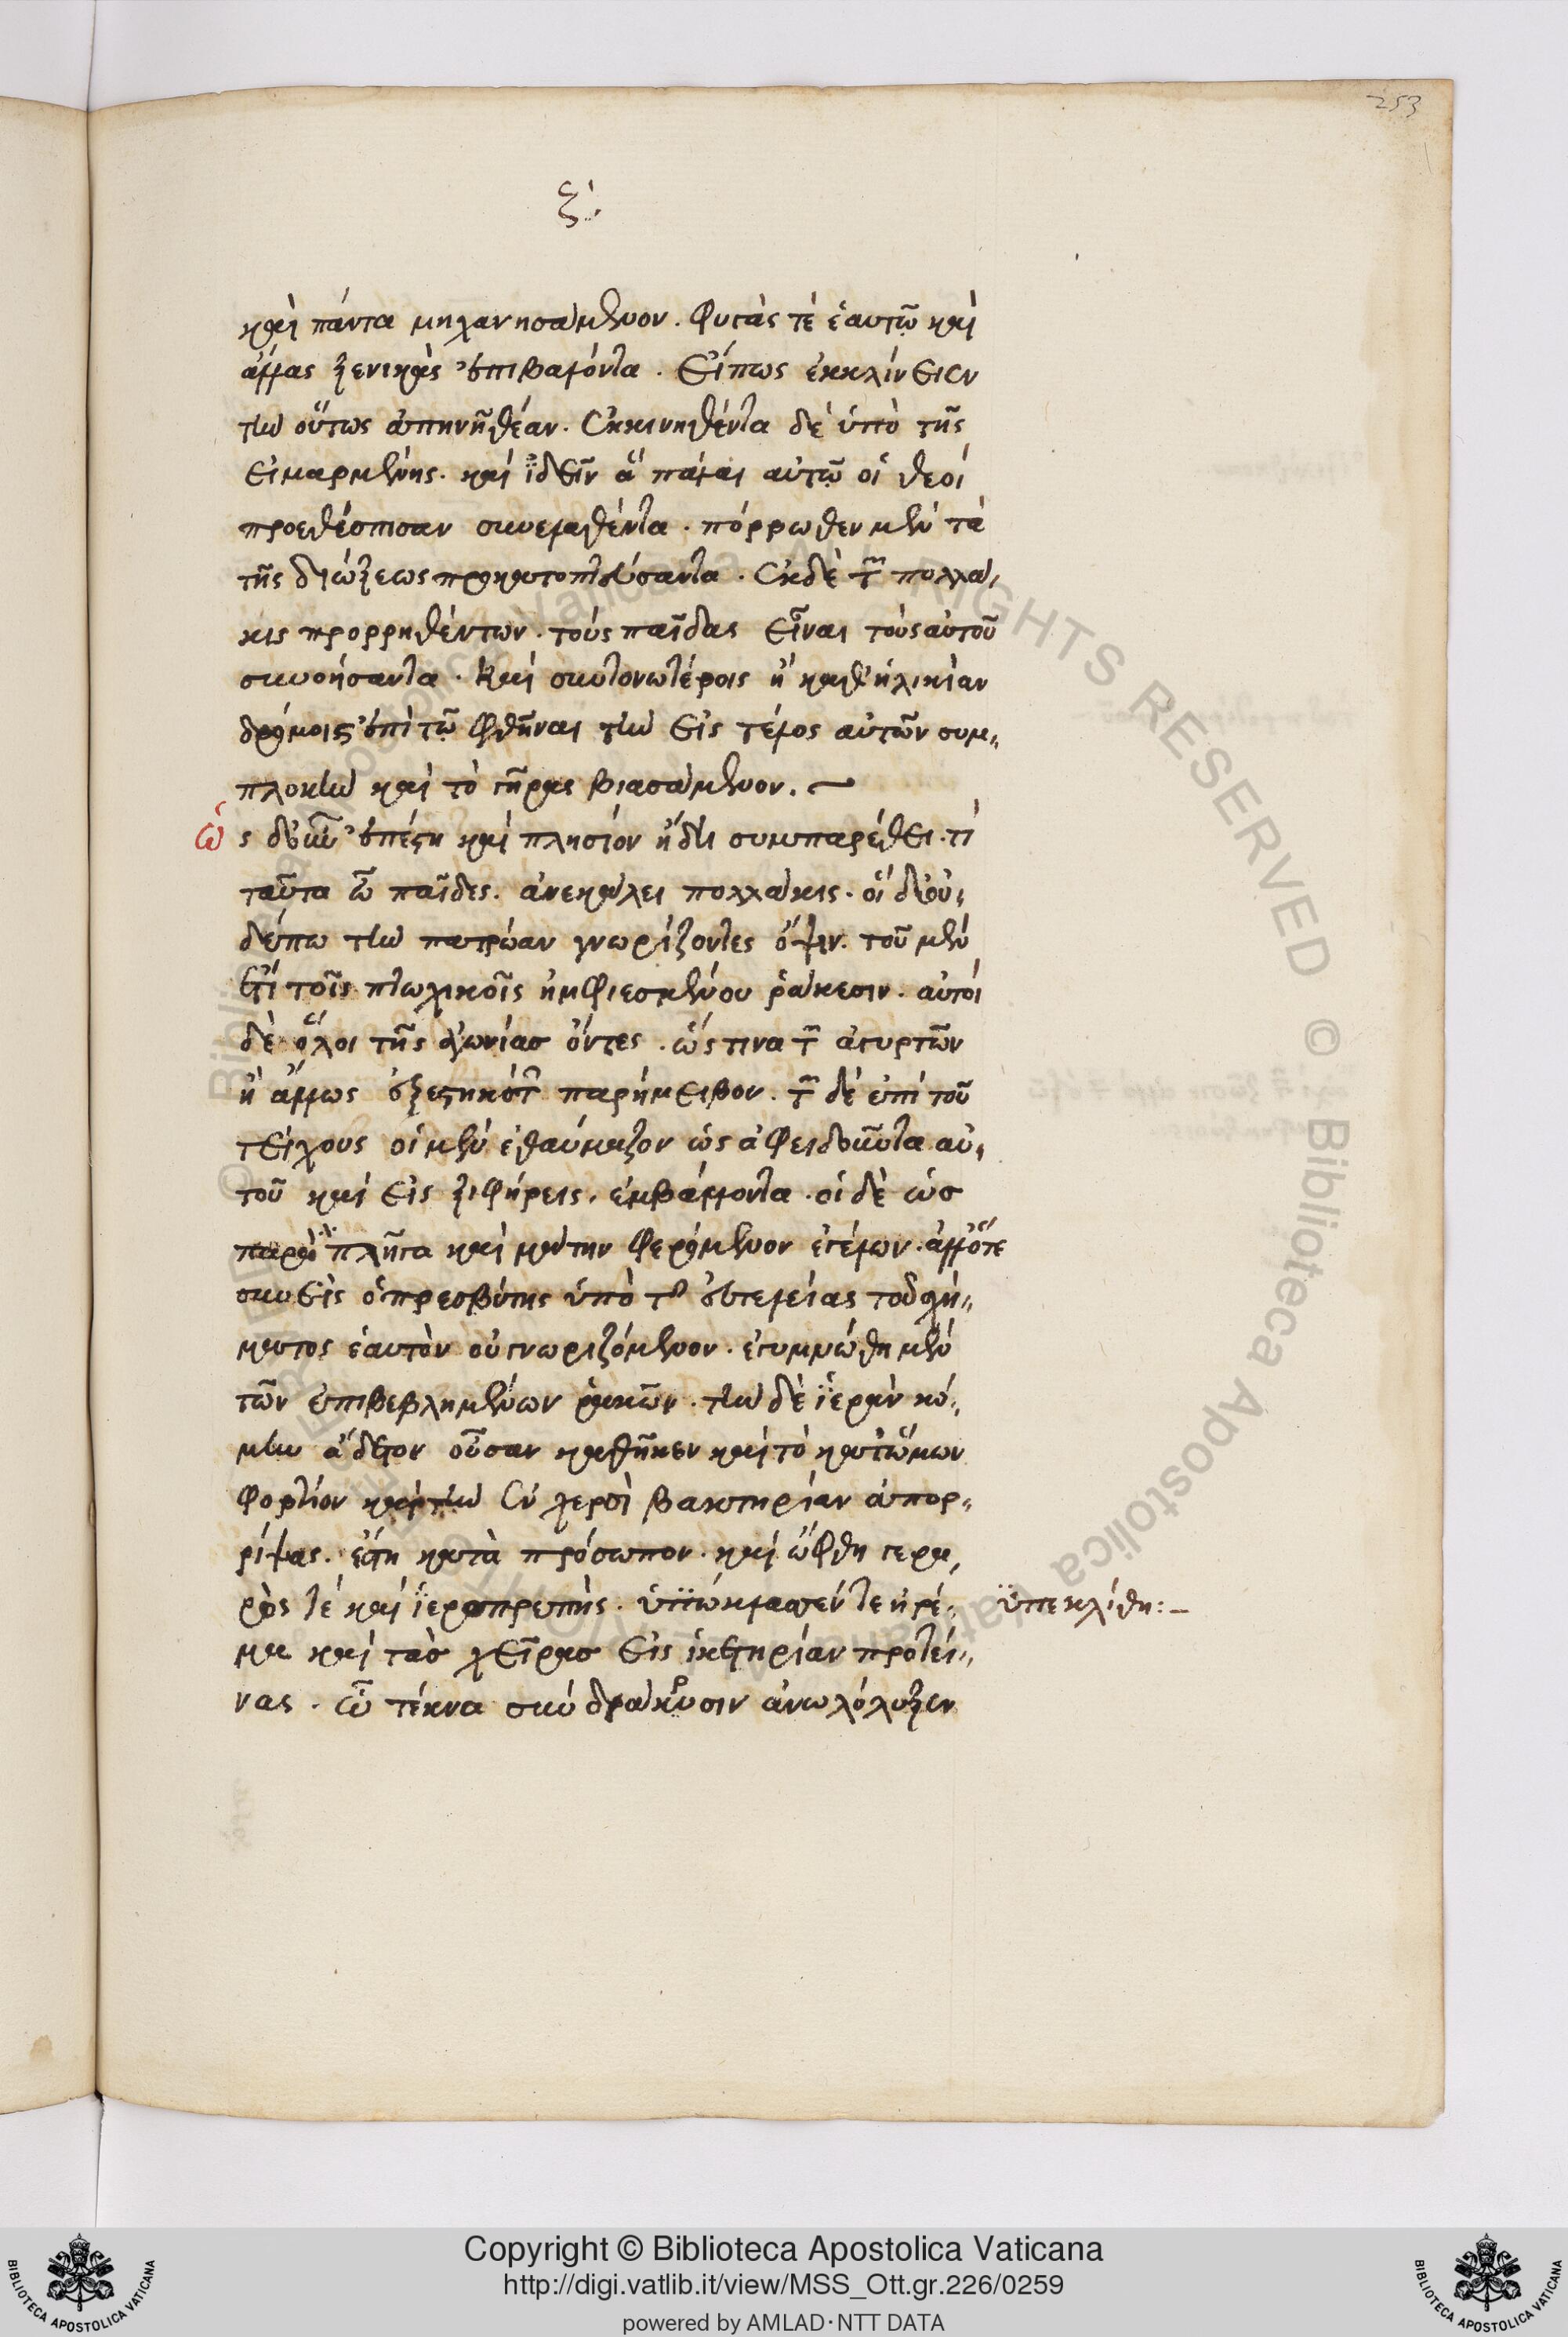 253
ζ·
καὶ πάντα μηχανησάμενον. φυγάς τὲ ἑαυτῷ καὶ
ἄλλας ξενικὰς ἐπιβαλόντα. εἴπως ἐκκλίνειεν
τὴν οὕτως ἀπηνῆ θέαν. ἐκκινηθέντα δὲ ὑπὸ τῆς
εἱμαρμένης. καὶ ἰδεῖν ἃ πάλαι αὐτῷ οἱ θεοὶ
προεθέσπισαν συνελαθέντα. πόρρωθεν μὲν τὰ
τῆς διώξεως προκατοπτεύσαντα. ἐκ δὲ τῶν πολλά-
κις προρρηθέντων. τοὺς παῖδας εἶναι τοὺς αὐτοῦ
συνοήσαντα. καὶ συντονωτέροις ἢ καθ' ἡλικίαν
δρόμοις ἐπὶ τῷ φθῆναι τὴν εἰς τέλος αὐτῶν συμ-
πλοκὴν καὶ τὸ γῆρας βιασάμενον.
ὡς δ' οὖν ἐπέστη καὶ πλησίον ἤδη συμπαρέθει. τί
ταῦτα ὦ παῖδες. ἀνεκάλει πολλάκις. οἱ δ' οὐ-
δέπω τὴν πατρῴαν γνωρίζοντες ὄψιν. τοῦ μὲν
ἔτι τοῖς πτωχικοῖς ἠμφιεσμένου ῥάκεσιν. αὐτοὶ
δὲ ὅλοι τῆς ἀγωνίας ὄντες. ὥς τινα τῶν ἀγυρτῶν
ἢ ἄλλως ἐξεστηκότων παρήμειβον. τῶν δὲ ἐπὶ τοῦ
τείχους οἱ μὲν ἐθαύμαζον ὡς ἀφειδοῦντα αὑ-
τοῦ καὶ εἰς ξιφήρεις. ἐμβάλλοντα. οἱ δὲ ὡς
παραπλῆγα καὶ μάτην φερόμενον ἐγέλων. ἀλλ' ὅτε
συνεὶς ὁ πρεσβύτης ὑπὸ τῆς εὐτελείας τοῦ σχή-
ματος ἑαυτὸν οὐ γνωριζόμενον. ἐγυμνώθη μὲν
τῶν ἐπιβεβλημένων ῥακῶν. τὴν δὲ ἱερὰν κό-
μην ἄδετον οὖσαν καθῆκεν καὶ τὸ κατ' ὤμων
φορτίον καὶ τὴν ἐν χερσὶ βακτηρίαν ἀπορ-
ρίψας. ἔστη κατὰ πρόσωπον. καὶ ὤφθη γερα-
ρός τέ καὶ ἱεροπρεπής. ὑπώκλασεν τε ἠρέ-
ὑπεκλίθη:-
μα καὶ τὰς χεῖρας εἰς ἱκετηρίαν προτεί-
νας. ὦ τέκνα σὺν δράκρυσιν ἀνωλόλυξεν
© Biblioteca Apostolica Vaticana ALL RIGHTS RESERVED © Biblioteca Apostolica Vaticana
BIBLIOTECA APOSTOLICA VATICANA
Copyright © Biblioteca Apostolica Vaticana
http://digi.vatlib.it/view/MSS_Ott.gr.226/0259
powered by AMLAD·NTT DATA
BIBLIOTECA APOSTOLICA VATICANA